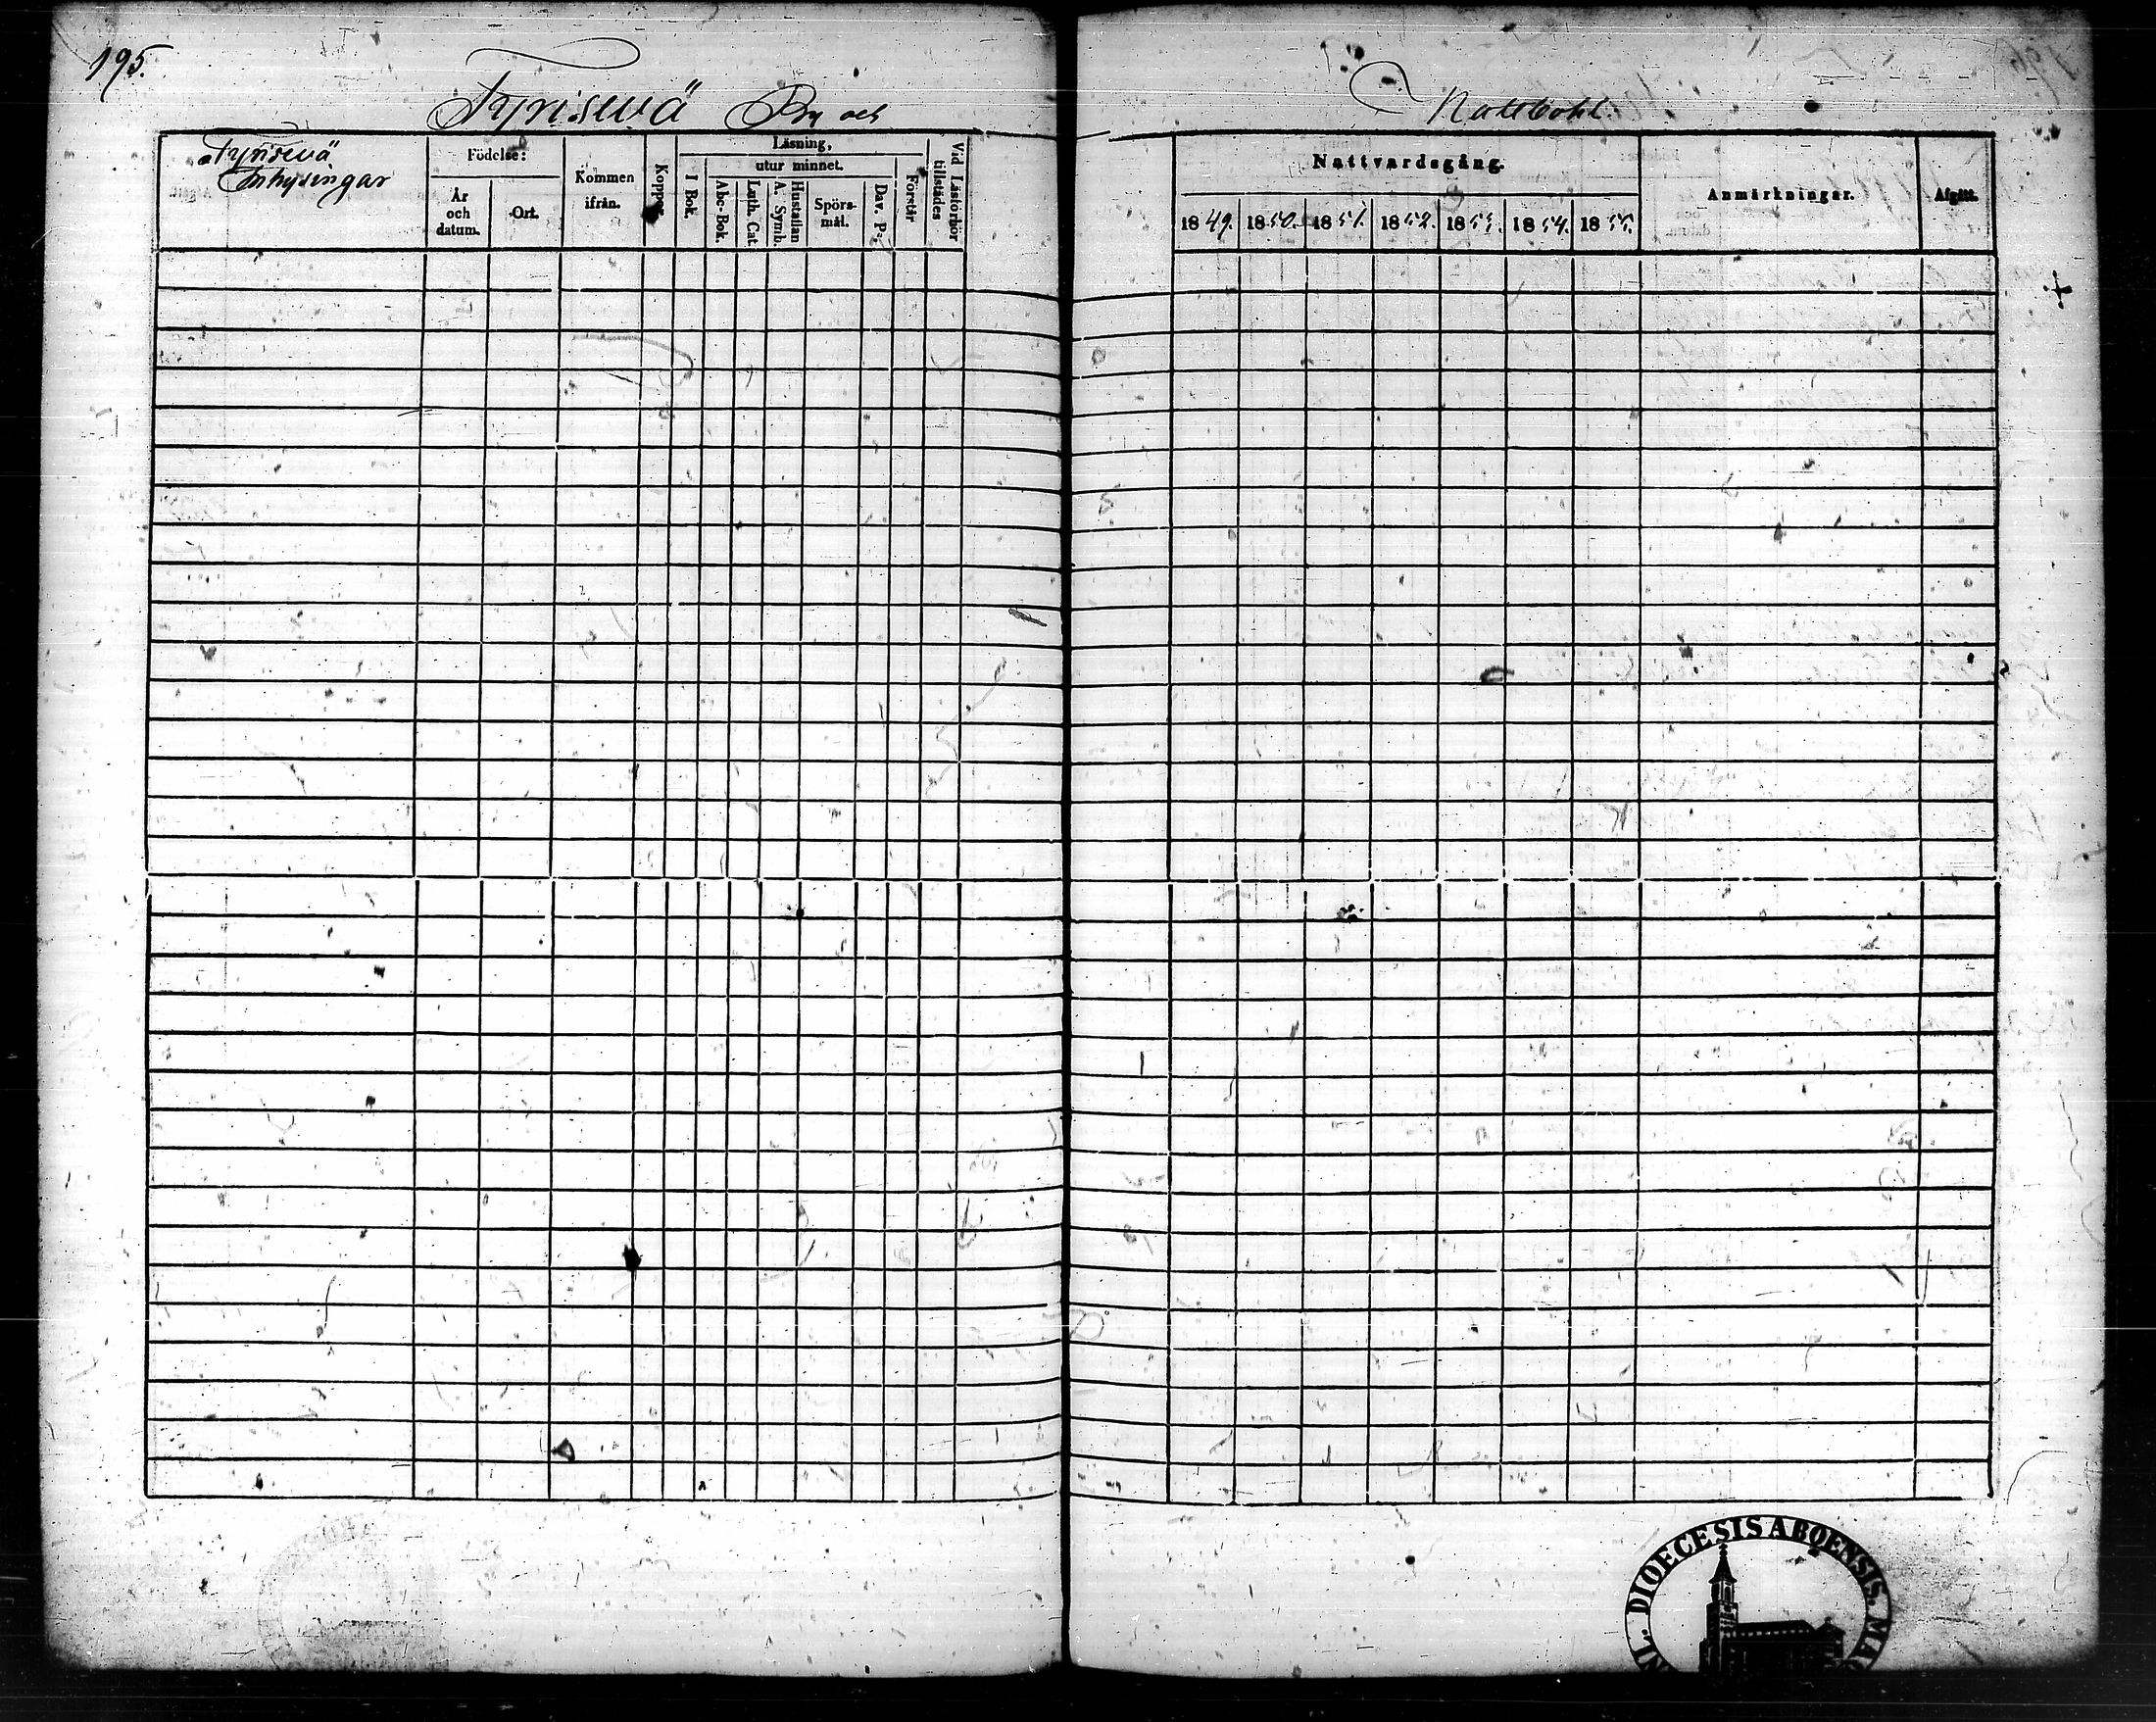 195.
Tyrisevä By och
Nattbohl.
Tyrisevä
Inhysingar
Födelse:
År
och
datum.
Ort.
Kommen
ifrån.
Koppor.
Läsning,
utur minnet.
I Bok.
Abc-Bok.
Luth. Cat.
Hustaflan
A. Symb.
Spörs-
mål.
Dav. Ps.
Förstår
Vid Läsförhör
tillstädes
Nattvardsgång.
1849. 1850. 1851. 1852. 1853. 1854. 1855.
Anmärkningar.
Afgått.
DIOECESIS ABOENSIS.